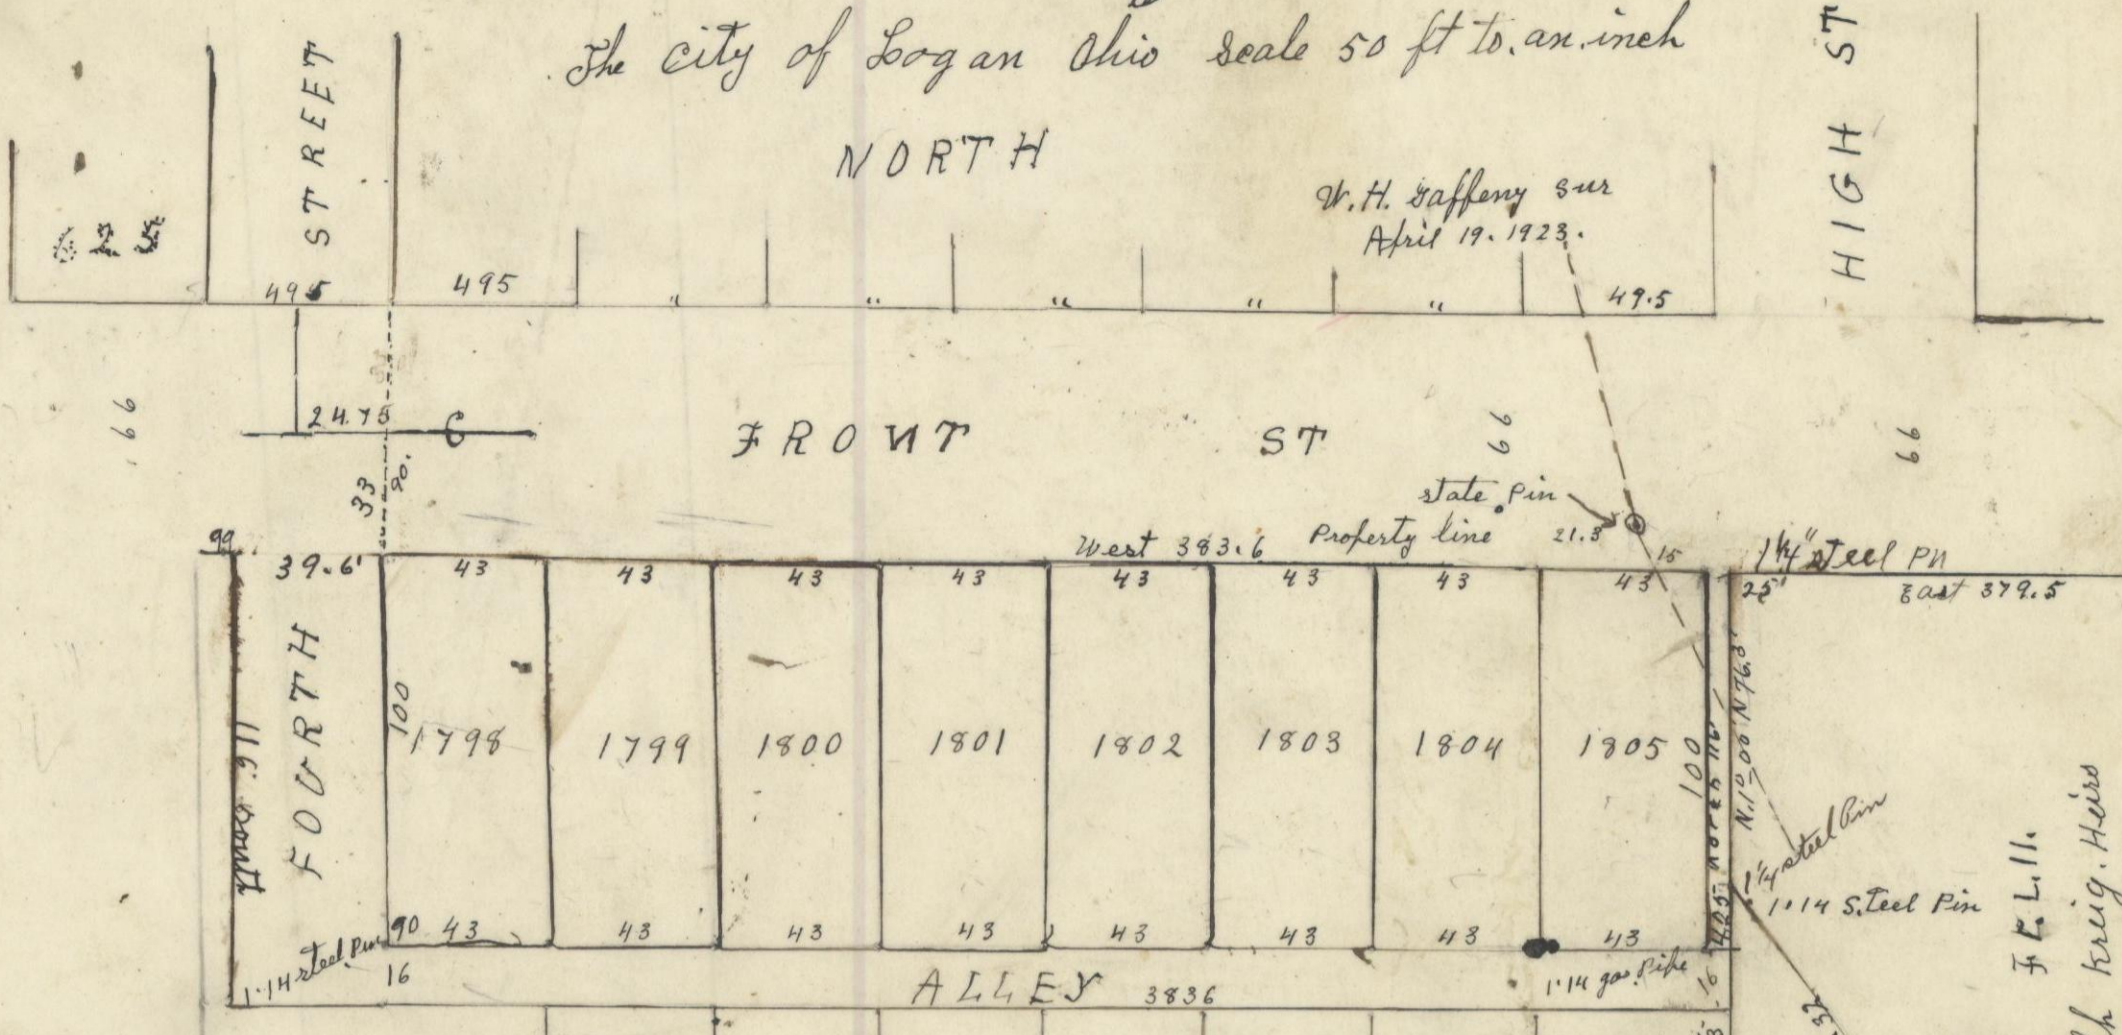 The City of Logan Ohio Scale 50 ft to. an. inch
STREET
HIGH ST
NORTH
W. H. Gaffeny Sur
April 19. 1923.
625
495
495
"
"
"
"
"
49.5
66
24.75
33
90.
FRONT ST
66
66
state Pin
Property line
21.3
15
West 383.6
99.
39.6'
43
43
43
43
43
43
43
43
1 1/4" steel Pn
25'
East 379.5
116 South
FOURTH
100
1798
1799
1800
1801
1802
1803
1804
1805
100
N.1° 00' N 76.8'
1 1/4 steel Pin
1.14 Steel Pin
Kreig. Heirs
1.14 steel Pin
90
43
43
43
43
43
43
43
43
16
ALLEY
3836
1.14 gas. Pipe
16